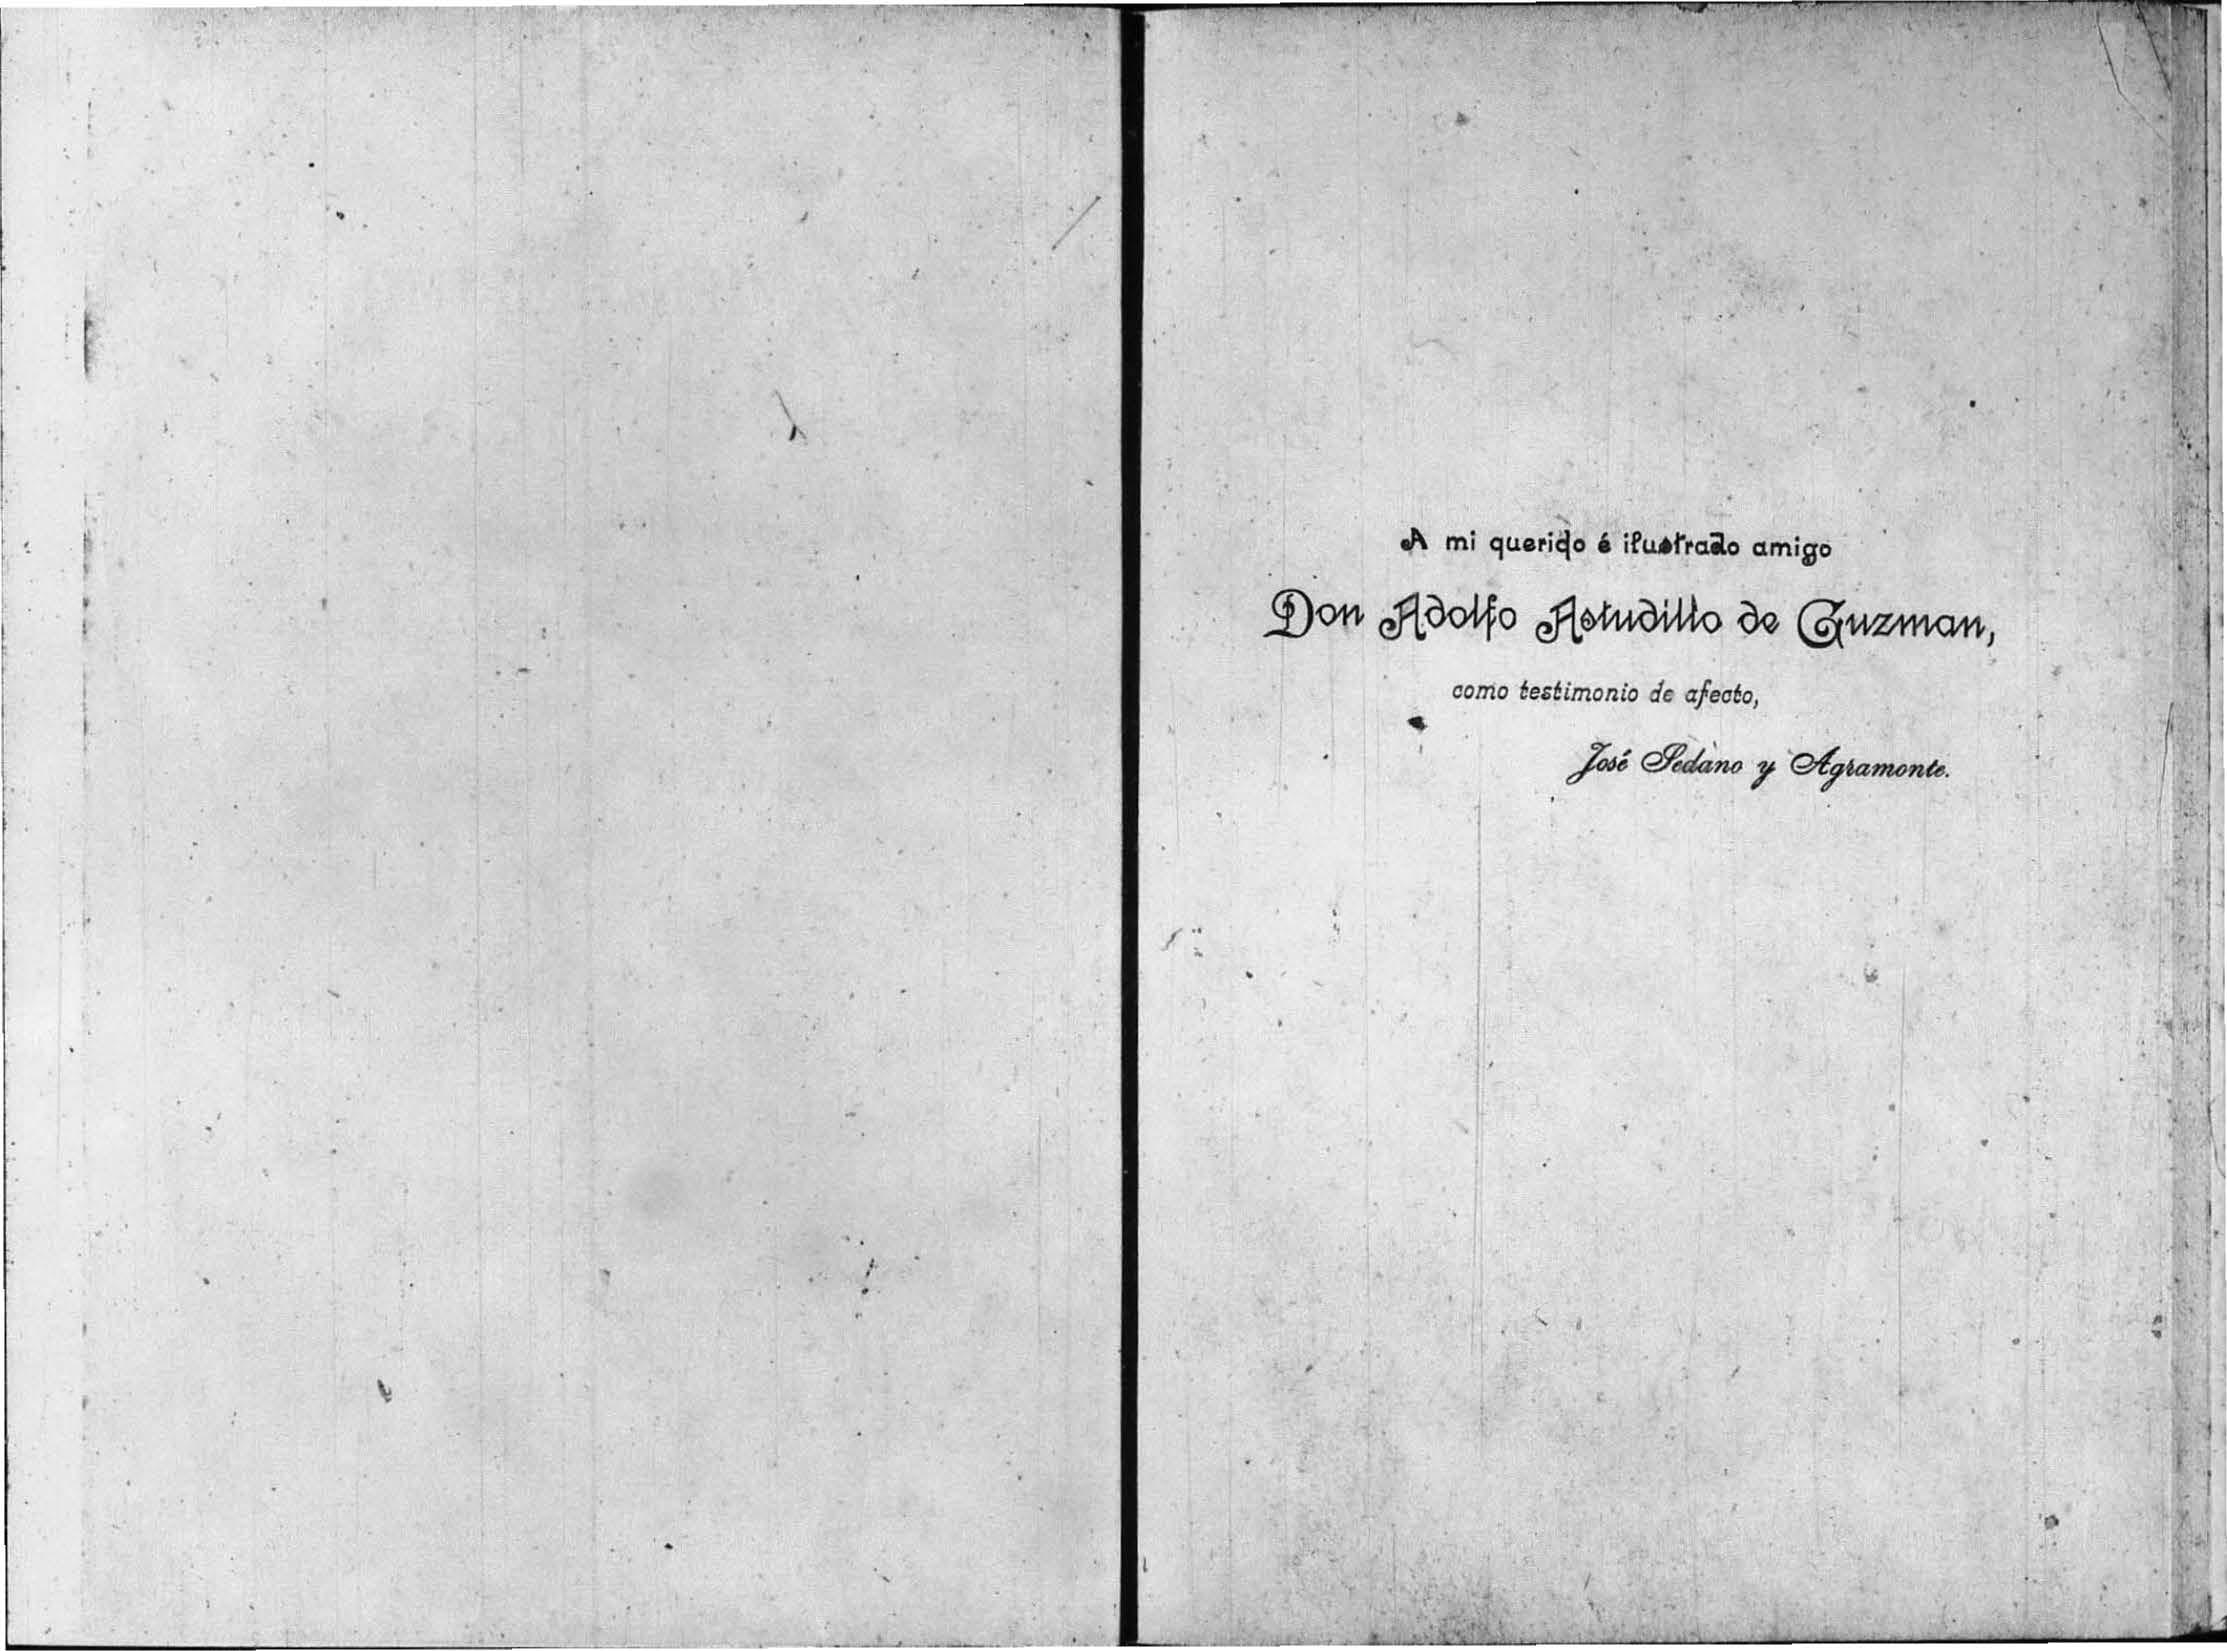 A mi querido é ilustrado amigo
Don Adolfo Astudillo de Guzman,
como testimonio de afecto,
José Sedano y Agramonte.